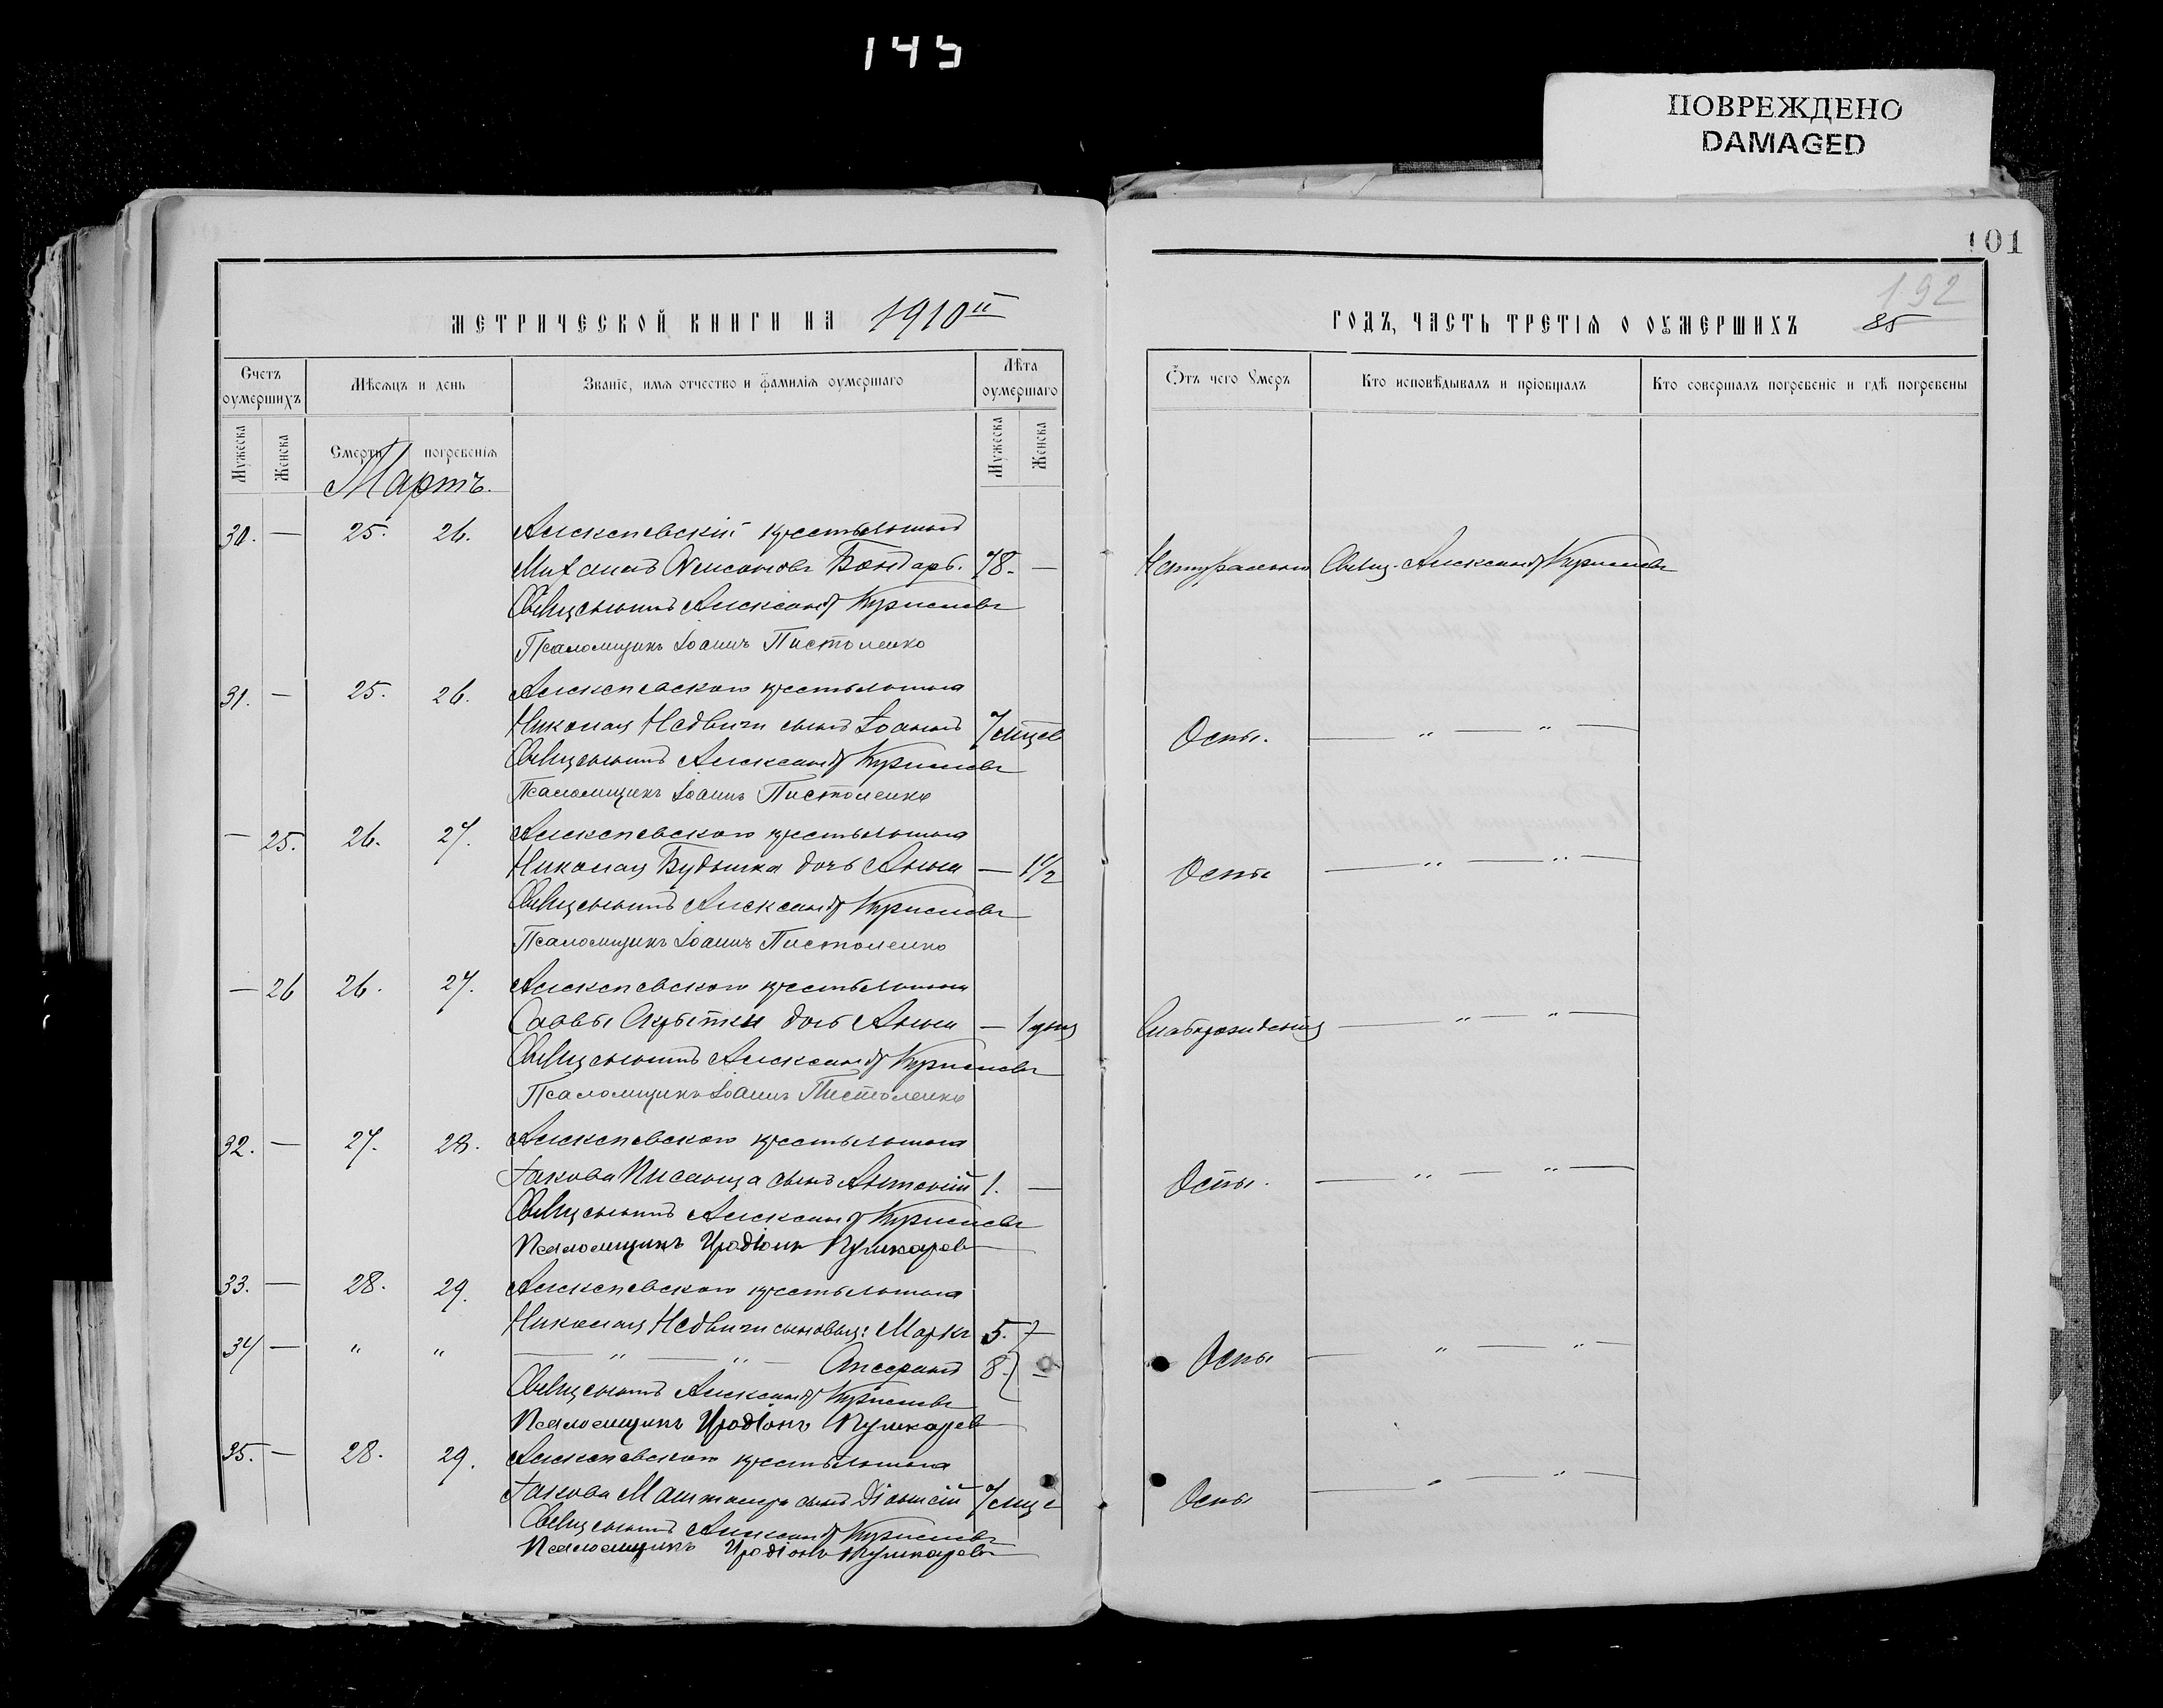 145
ПОВРЕЖДЕНО
DAMAGED
101
192
85
МЕТРИЧЕСКОЙ КНИГИ НА 1910й
ГОДЪ, ЧАСТЬ ТРЕТІЯ О ОУМЕРШИХЪ
Счетъ оумершихъ
Мѣсяцъ и день
Званіе, имя отчество и фамилія оумершаго
Лѣта оумершаго
Отъ чего Умеръ
Кто исповѣдывалъ и пріобщалъ
Кто совершалъ погребеніе и гдѣ погребены
Мужеска Женска Смерти погребенія Мужеска Женска
Мартъ.
30. — 25. 26. Алексѣевскій крестьянинъ
Михаилъ Бондарь. 78. — Натурально Свящ. Александръ
Священникъ Александръ
Псаломщикъ Іоаннъ Пистоленко
31. — 25. 26. Алексѣевскаго крестьянина
Николая Недвиги сынъ Іоаннъ 7 мцев Оспы. — " — " —
Священникъ Александръ
Псаломщикъ Іоаннъ Пистоленко
— 25. 26. 27. Алексѣевскаго крестьянина
Николая Будника дочь Анна — 1 1/2 Оспы — " — " —
Священникъ Александръ
Псаломщикъ Іоаннъ Пистоленко
— 26 26. 27. Алексѣевскаго крестьянина
Саввы дочь Анна — 1 дня Слаборожденія — " — " —
Священникъ Александръ
Псаломщикъ Іоаннъ Пистоленко
32. — 27. 28. Алексѣевскаго крестьянина
Іакова сынъ Антоній 1. — Оспы. — " — " —
Священникъ Александръ
Псаломщикъ Иродіонъ Пушкаревъ
33. — 28. 29. Алексѣевскаго крестьянина
Николая Недвиги сыновья: Маркъ 5.
34 — " " — " — " — 8. — Оспы — " — " —
Священникъ Александръ
Псаломщикъ Иродіонъ Пушкаревъ
35. — 28. 29. Алексѣевскаго крестьянина
Іакова сынъ Діонисій 7 мце Оспы — " — " —
Священникъ Александръ
Псаломщикъ Иродіонъ Пушкаревъ